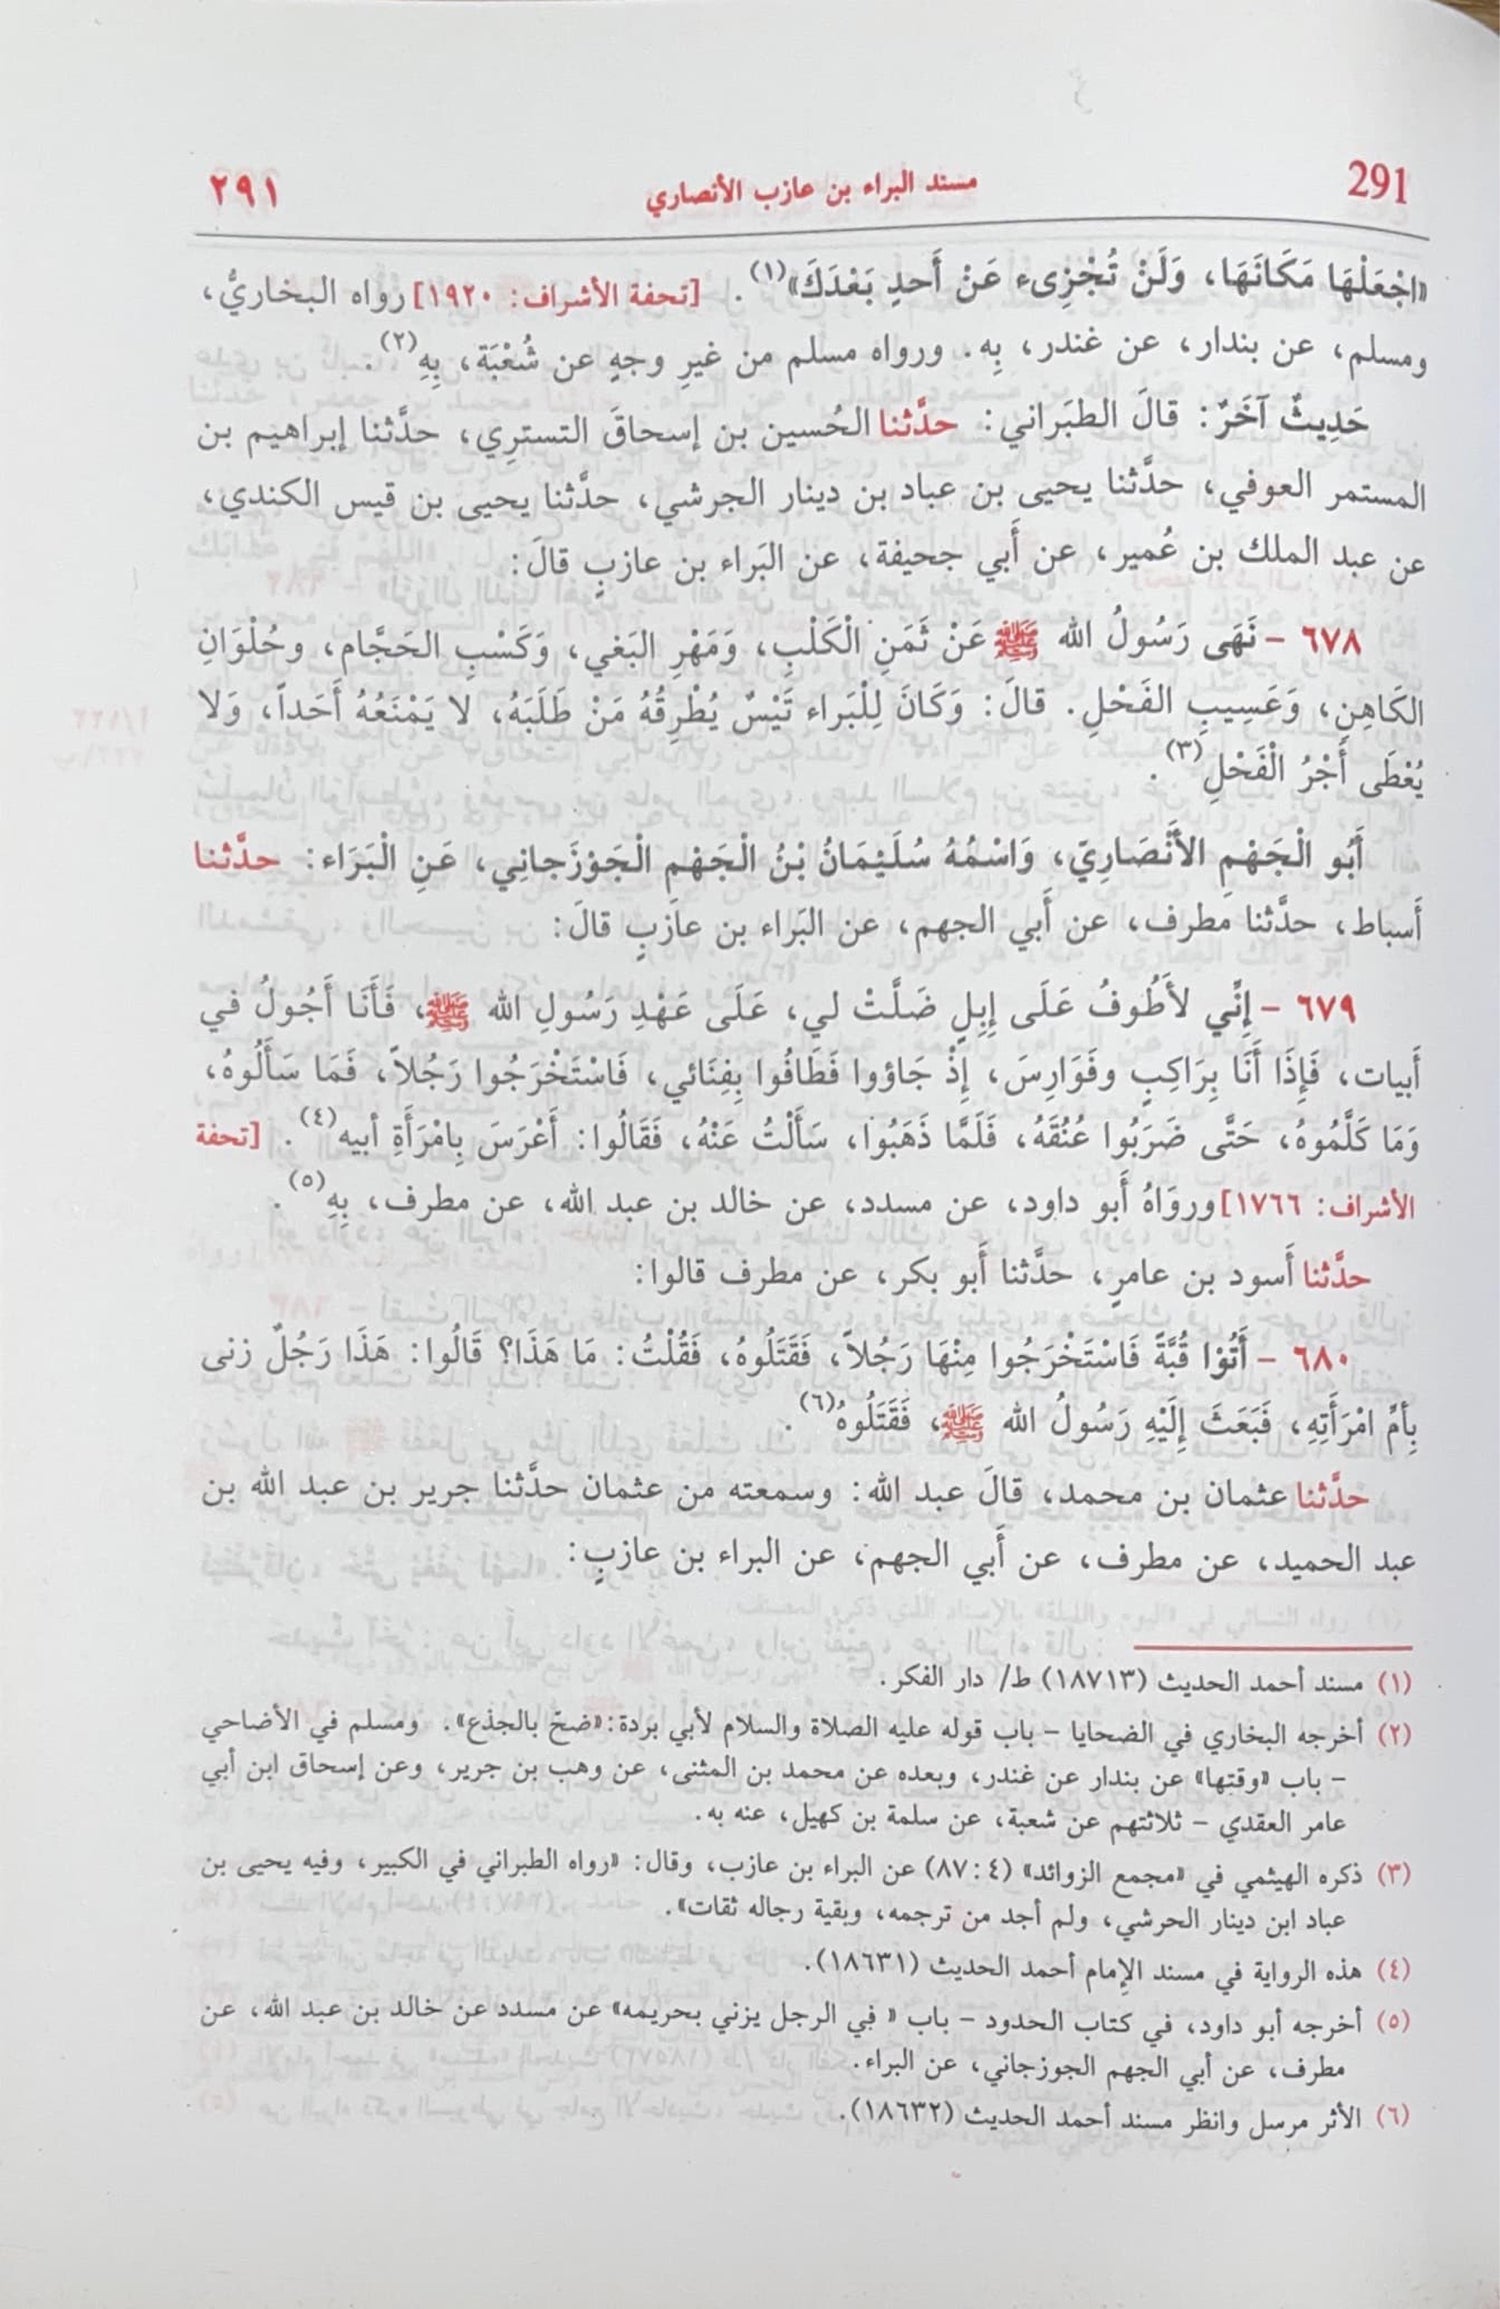 291 مسند البراء بن عازب الأنصاري ٢٩١
«اجْعَلْهَا مَكَانَهَا، وَلَنْ تُجْزِىء عَنْ أَحدٍ بَعْدَكَ»(١). [تحفة الأشراف: ١٩٢٠] رواه البخاريُّ،
ومسلم، عن بندار، عن غندر، بِه. ورواه مسلم من غيرِ وجهٍ عن شُعْبَة، بِهِ(٢).
حَدِيثٌ آخَرٌ: قالَ الطبَراني: حدَّثنا الحُسين بن إسحاقَ التسترِي، حدَّثنا إبراهيم بن
المستمر العوفي، حدَّثنا يحيى بن عباد بن دينار الجرشي، حدَّثنا يحيى بن قيس الكندي،
عن عبد الملك بن عُمير، عن أَبي جحيفة، عن البَراء بن عازبٍ قالَ:
٦٧٨ - نَهَى رَسُولُ الله ﷺ عَنْ ثَمَنِ الْكَلْبِ، وَمَهْرِ البَغي، وَكَسْبِ الحَجَّام، وحُلْوَانِ
الكَاهِنِ، وَعَسِيبِ الفَحْلِ. قالَ: وَكَانَ لِلْبَراء تَيْسٌ يُطْرِقُهُ مَنْ طَلَبَهُ، لا يَمْنَعُهُ أَحَداً، وَلا
يُعْطَى أَجْرُ الْفَحْلِ(٣).
أَبُو الْجَهْمِ الأَنْصَارِيّ، وَاسْمُهُ سُلَيْمَانُ بْنُ الْجَهْمِ الْجَوْزَجانِي، عَنِ الْبَرَاء: حدَّثنا
أَسباط، حدَّثنا مَطرف، عن أَبي الجهم، عن البَراء بن عازبٍ قالَ:
٦٧٩ - إِنِّي لأَطُوفُ عَلَى إِبِلٍ ضَلَّتْ لي، عَلَى عَهْدِ رَسُولِ الله ﷺ، فَأَنَا أَجُولُ في
أَبيات، فَإِذَا أَنَا بِرَاكِبٍ وفَوَارِسَ، إِذْ جَاؤوا فَطَافُوا بِفِنَائي، فَاسْتَخْرَجُوا رَجُلاً، فَمَا سَأَلُوهُ،
وَمَا كَلَّمُوهُ، حَتَّى ضَرَبُوا عُنُقَهُ، فَلَمَّا ذَهَبُوا، سَأَلْتُ عَنْهُ، فَقَالُوا: أَعْرَسَ بِامْرَأَةِ أبيه(٤). [تحفة
الأشراف: ١٧٦٦] وروَاهُ أَبو داود، عن مسدد، عن خالد بن عبد الله، عن مطرف، بِهِ(٥).
حدَّثنا أَسود بن عامرٍ، حدَّثنا أَبو بكر، عن مطرف قالوا:
٦٨٠ - أَتُوْا قُبَّةً فَاسْتَخْرَجُوا مِنْهَا رَجُلاً، فَقَتَلُوهُ، فَقُلْتُ: مَا هَذَا؟ قَالُوا: هَذَا رَجُلٌ زنى
بِأمِّ امْرَأَتِهِ، فَبَعَثَ إِلَيْهِ رَسُولُ الله ﷺ، فَقَتَلُوهُ(٦).
حدَّثنا عثمان بن محمد، قالَ عبد الله: وسمعته من عثمان حدَّثنا جرير بن عبد الله بن
عبد الحميد، عن مطرف، عن أَبي الجهم، عن البراء بن عازبٍ:
(١) مسند أحمد الحديث (١٨٧١٣) ط/ دار الفكر.
(٢) أخرجه البخاري في الضحايا - باب قوله عليه الصلاة والسلام لأبي بردة: «ضحّ بالجذع». ومسلم في الأضاحي
- باب «وقتها» عن بندار عن غندر، وبعده عن محمد بن المثنى، عن وهب بن جرير، وعن إسحاق ابن أبي
عامر العقدي - ثلاثتهم عن شعبة، عن سلمة بن كهيل، عنه به.
(٣) ذكره الهيثمي في «مجمع الزوائد» (٨٧:٤) عن البراء بن عازب، وقال: «رواه الطبراني في الكبير، وفيه يحيى بن
عباد ابن دينار الحرشي، ولم أجد من ترجمه، وبقية رجاله ثقات».
(٤) هذه الرواية في مسند الإمام أحمد الحديث (١٨٦٣١).
(٥) أخرجه أبو داود، في كتاب الحدود - باب « في الرجل يزني بحريمه» عن مسدد عن خالد بن عبد الله، عن
مطرف، عن أبي الجهم الجوزجاني، عن البراء.
(٦) الأثر مرسل وانظر مسند أحمد الحديث (١٨٦٣٢).